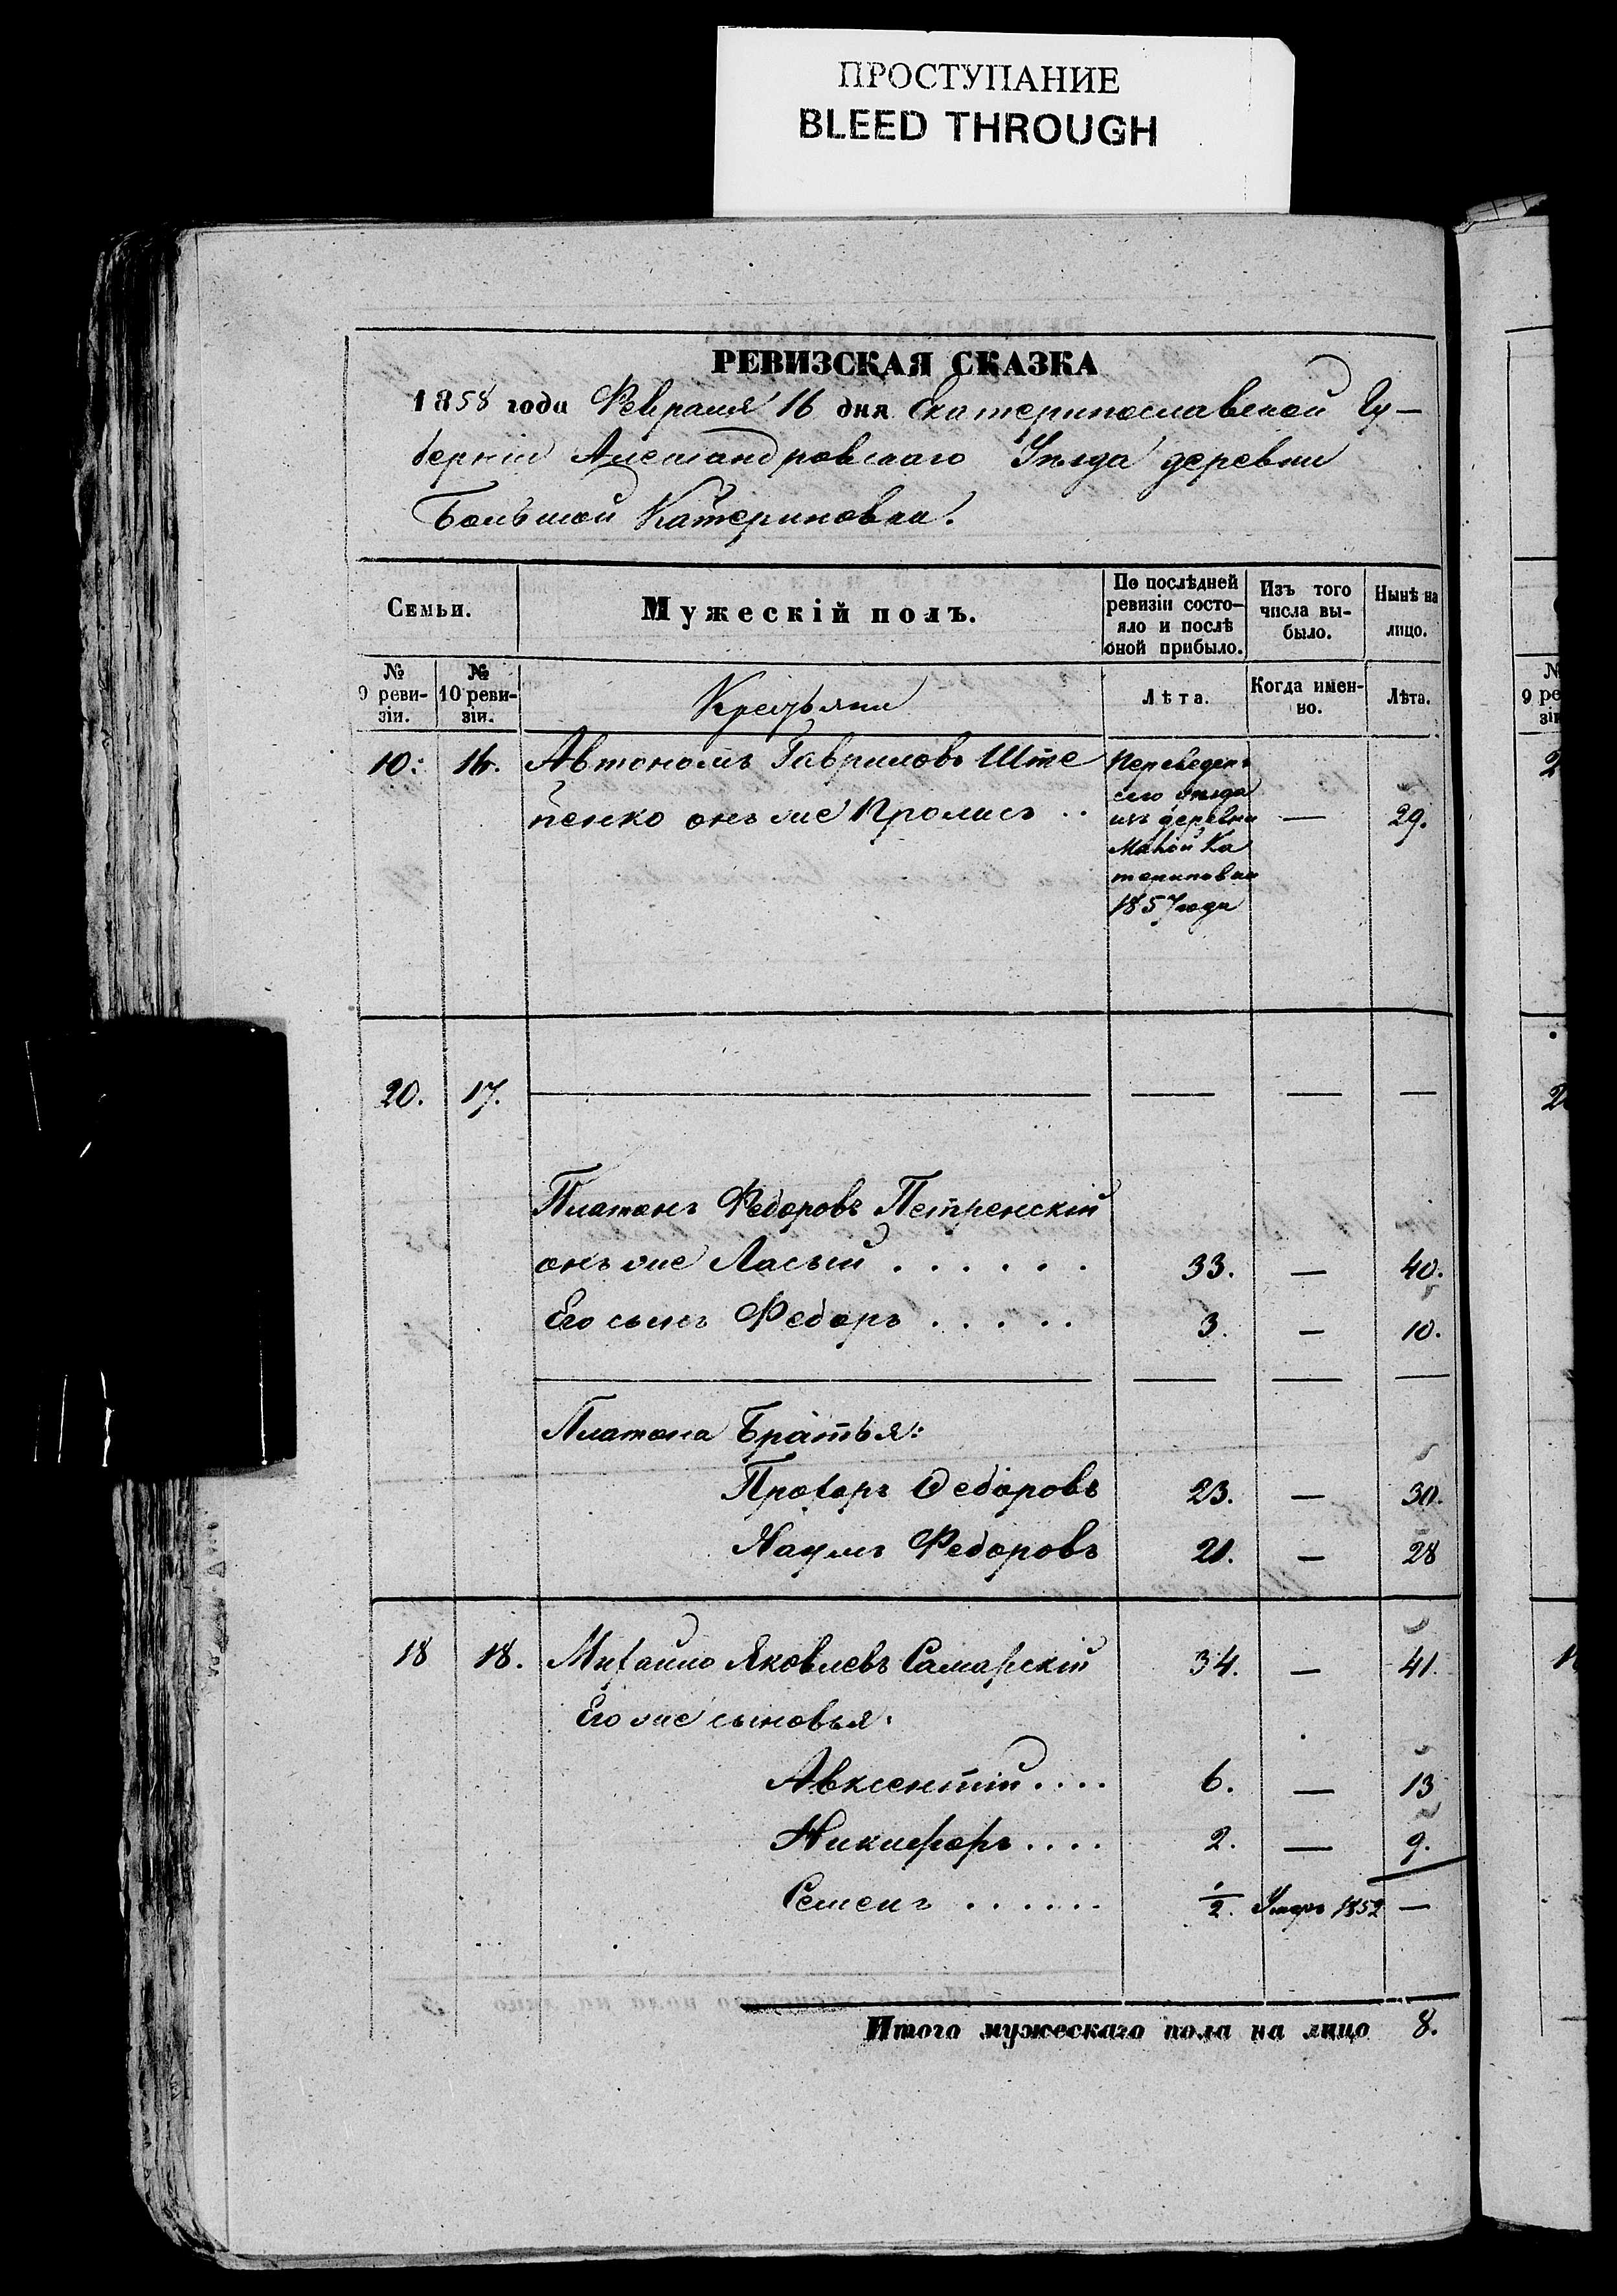 ПРОСТУПАНИЕ
BLEED THROUGH
РЕВИЗСКАЯ СКАЗКА
1858 года Февраля 16 дня Екатеринославской Гу-
берніи Александровскаго Уѣзда деревни
Большой Катериновки.
Семьи.
Мужескій полъ.
По послѣдней
ревизіи состо-
яло и послѣ
оной прибыло.
Изъ того
числа вы-
было.
Нынѣ на
лицо.
№
9 реви-
зіи.
№
10 реви-
зіи.
Крестьяни
Лѣта.
Когда имен-
но.
Лѣта.
10. 16. Автономъ ГавриловъШте
пенко онъ же . . — 29.
Переведенъ
сего уѣзда
изъ деревни
Малой Ка
териновки
1857 года
20. 17. — — — —
Платонъ Федоровъ Петренскій
онъ же Ласый . . . . . . 33. — 40.
Его сынъ Федоръ . . . . . 3. — 10.
— — — —
Платона Братья:
Прохоръ Федоровъ 23. — 30.
Наумъ Федоровъ 21. — 28
18 18. Михайло Яковлевъ Самарскій 34. — 41.
Его же сыновья:
Авксентій . . . . 6. — 13
Никифоръ . . . . 2. — 9.
Семенъ . . . . . . 1/2. Умеръ 1852 —
Итого мужескаго пола на лицо 8.